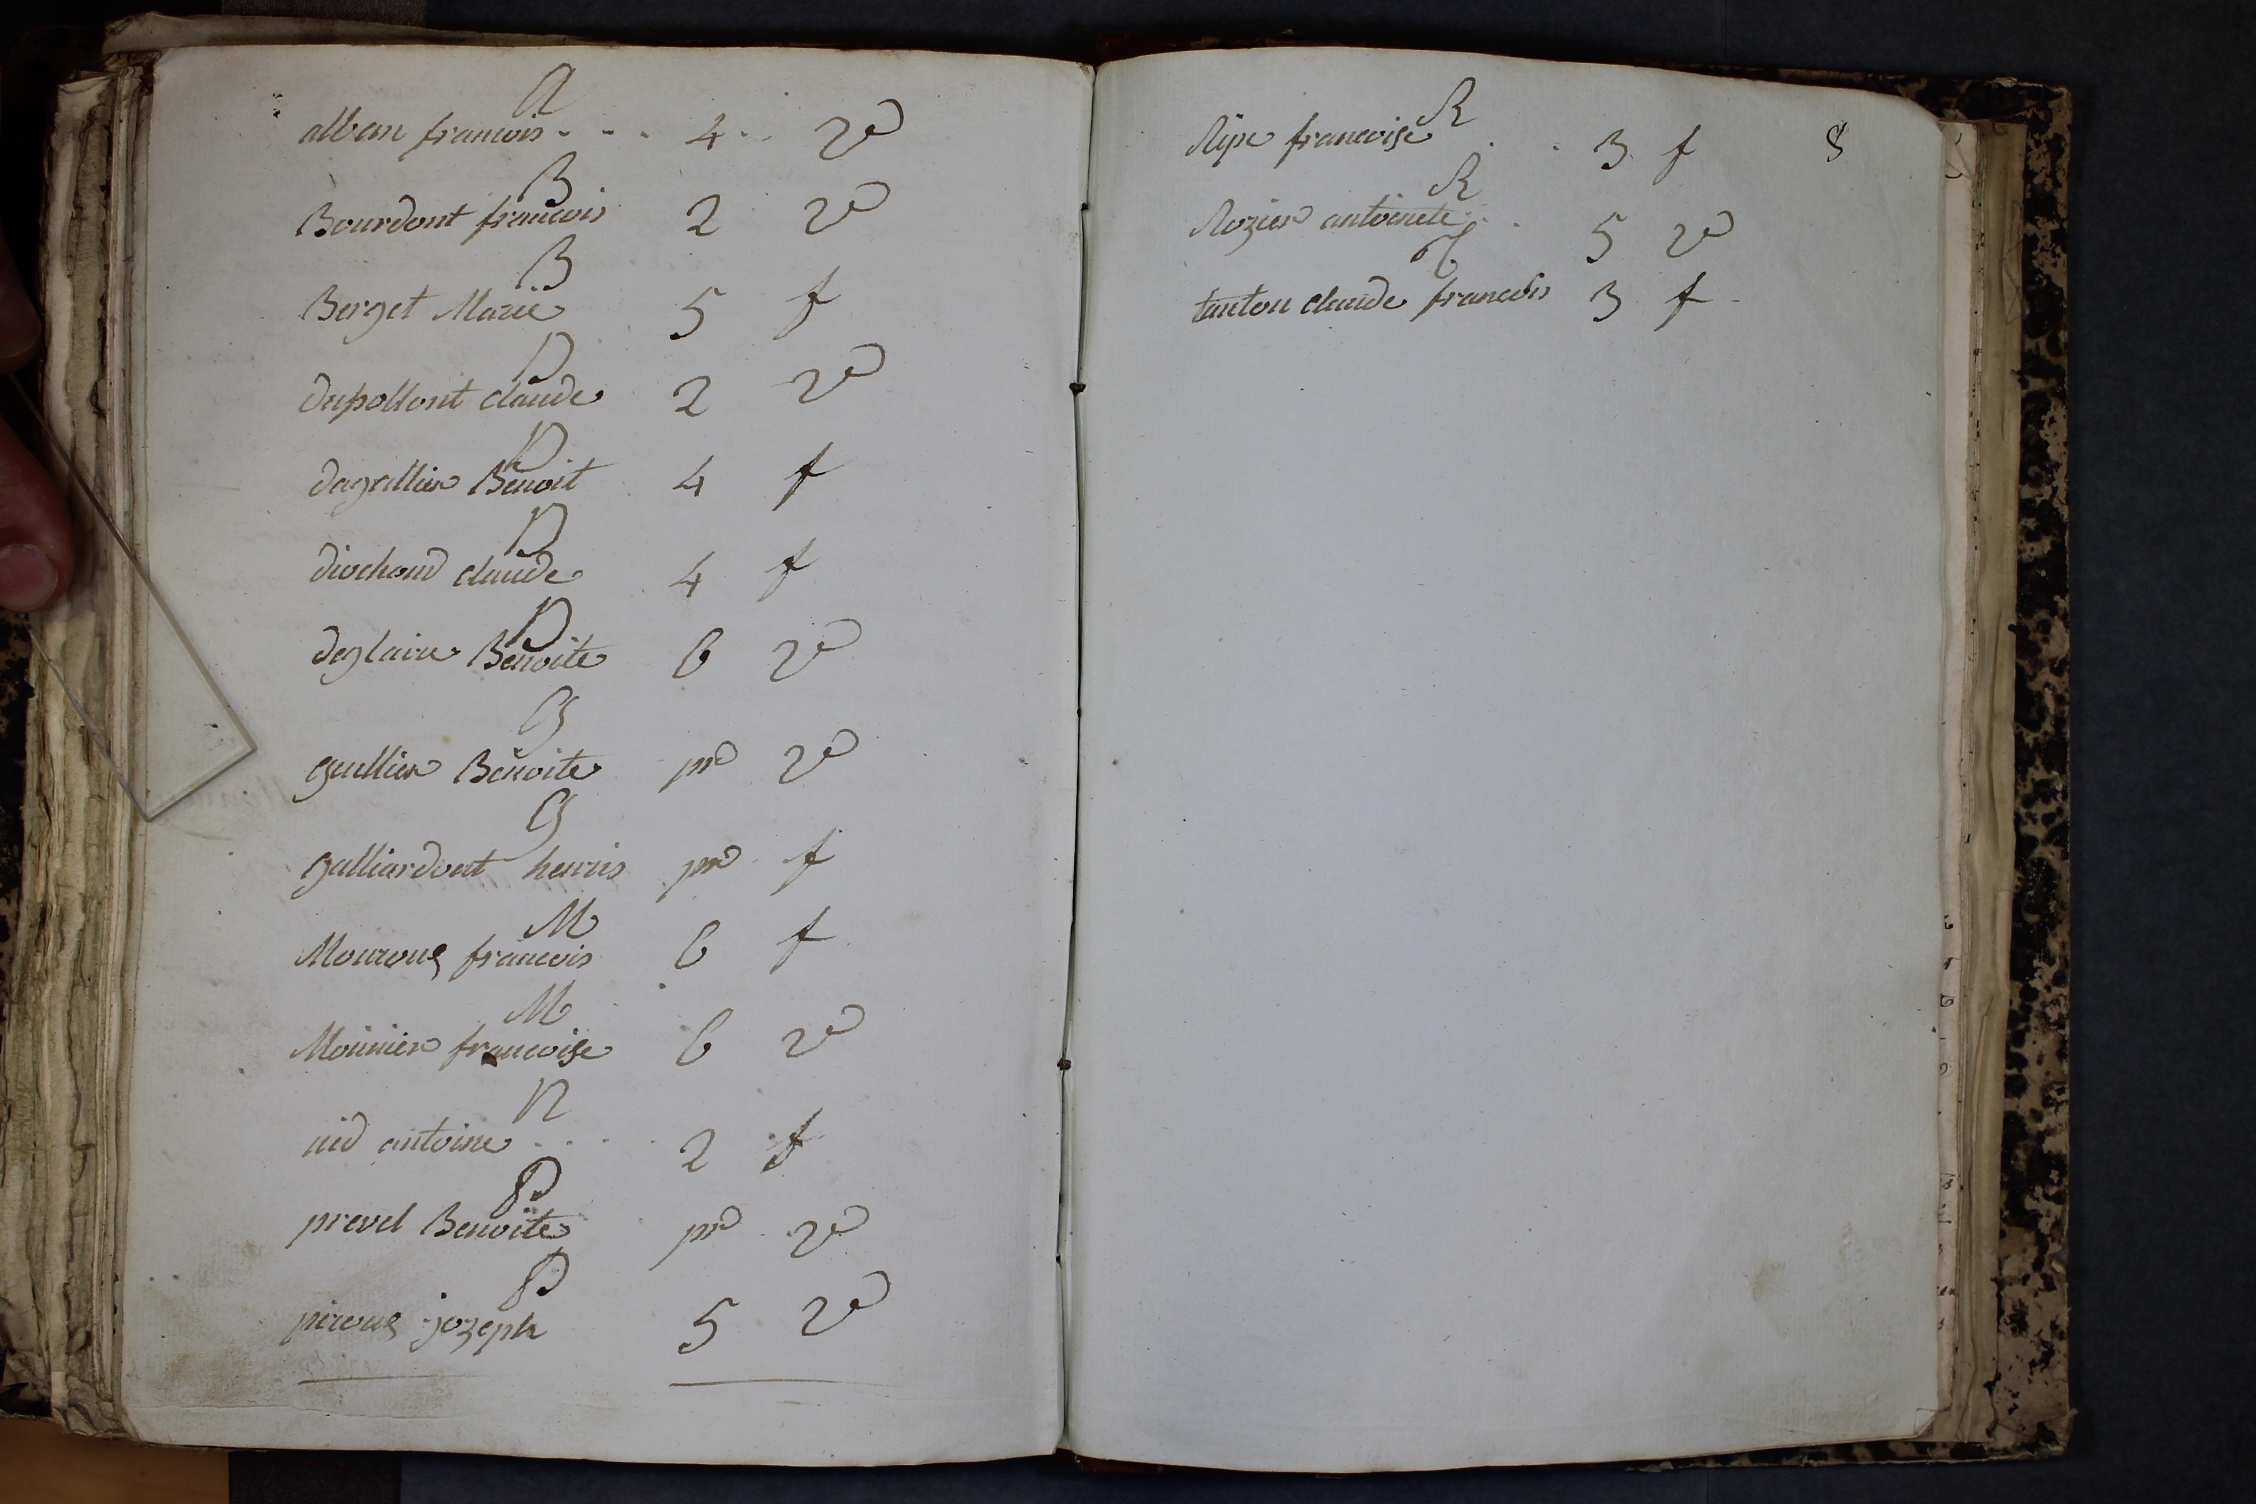 A
alban francois . . . . 4 . . vo
B
Bourdont francois 2 vo
B
Berget Marie 5 f
D
dupollont claude 2 vo
D
dagallier Benoit 4 f
D
diochand claude 4 f
D
deglaire Benoite 6 vo
G
guillier Benoite pr vo
G
galliardont henris pr f
M
Mouroug francois 6 f
M
Monnier francoise 6 vo
N
nid antoine . . . . 2 f
P
prevel Benoite pr vo
P
piroug jozeph 5 vo
R
8
Ripe francoise . . 3 f
R
Rozier antoinete . . 5 vo
T
tanton claude francois 3 f